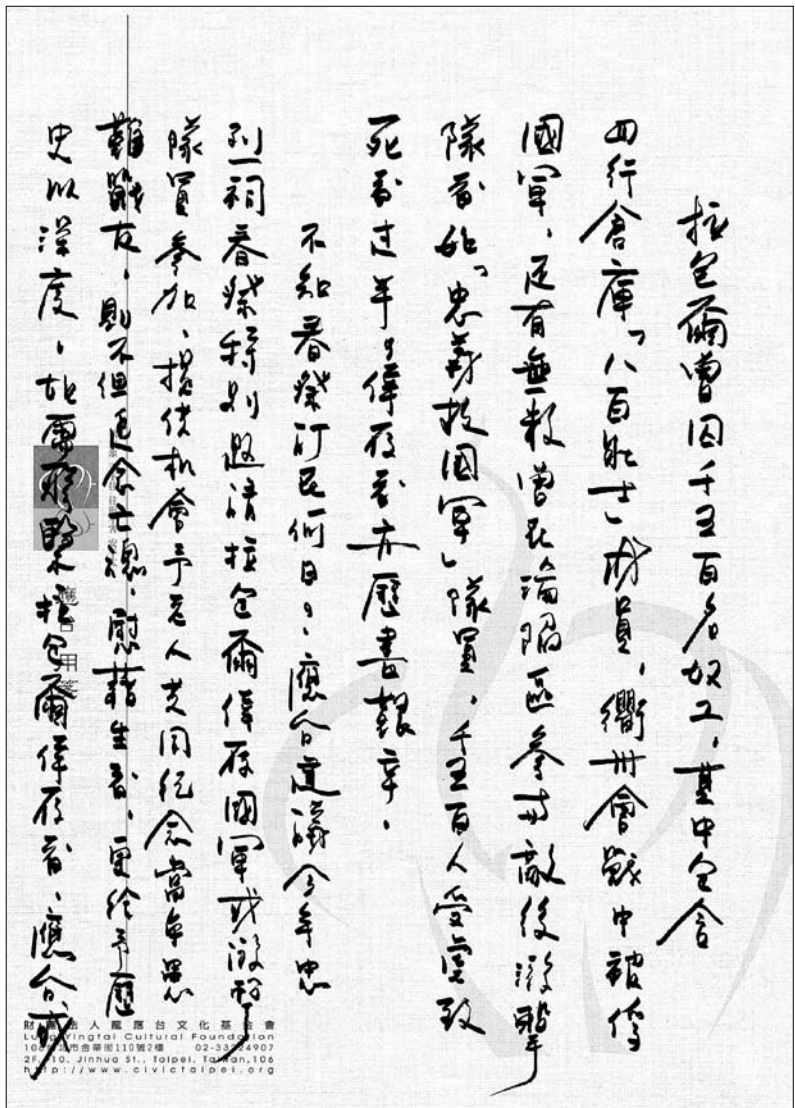 拉包爾曾囚千五百名奴工，其中包含
四行倉庫「八百壯士」成員，衢州會戰中被俘
國軍，足有無數曾在淪陷區參與敵後游擊
隊者如「忠義救國軍」隊員，千五百人受虐致
死者过半，倖存者亦歷盡艱辛，
不知春祭訂在何日？，應台建議今年忠
烈祠春祭特別邀請拉包爾倖存國軍或游擊
隊員參加，提供机會予老人共同紀念當年患
難戰友，則不但追念亡魂，慰藉生者，更給予歷
史以深度，如需聯繫拉包爾倖存者，應台或
應台用箋
財團法人龍應台文化基金會
Lung Yingtai Cultural Foundation
106台北市金華街110號2樓 02-33224907
2F., 110, Jinhua St., Taipei, Taiwan,106
http://www.civictaipei.org